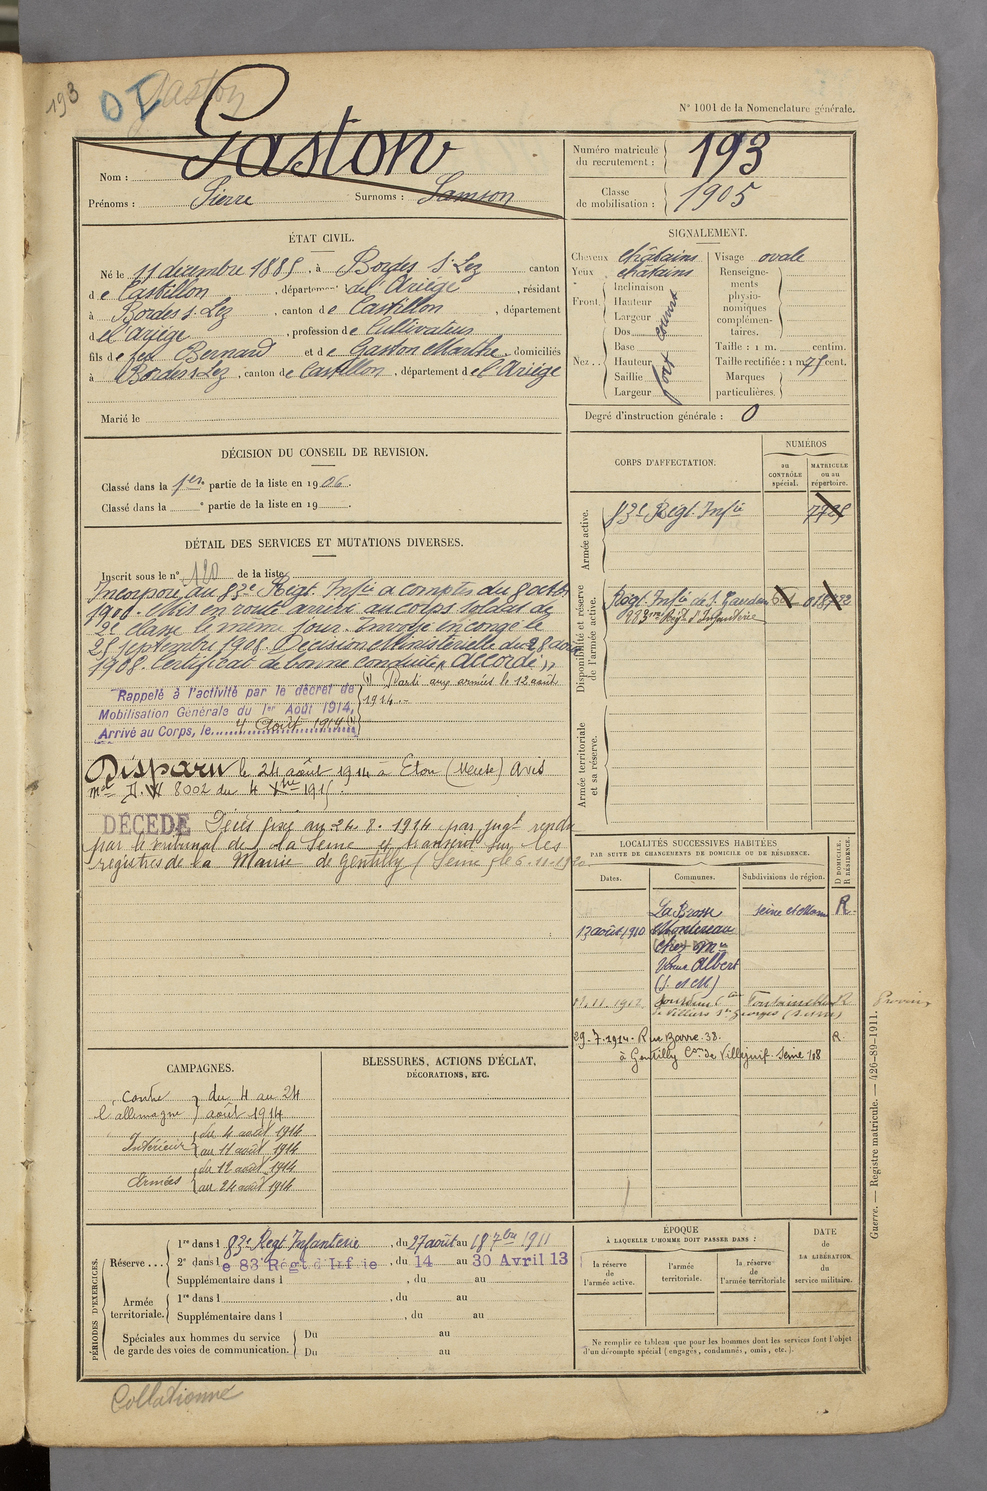 193
OI
Gaston
N° 1001 de la Nomenclature générale.
Nom : Gaston
Prénoms : Pierre Surnoms : Samson
Numéro matricule du recrutement : 193
Classe de mobilisation : 1905
ÉTAT CIVIL.
Né le 11 décembre 1885, à Bordes s/ Lez canton
de Castillon, département de l'Ariège, résidant
à Bordes s. Lez, canton de Castillon, département
de l'Ariège, profession de Cultivateur
fils de feu Bernard et de Gaston Marthe, domiciliés
à Bordes s Lez, canton de Castillon, département de l'Ariège
Marié le
SIGNALEMENT.
Cheveux châtains Visage ovale
Yeux châtains
Front. Inclinaison
Hauteur
Largeur
Dos
Nez.. Base
Hauteur fort
Saillie
Largeur
Renseignements physionomiques complémentaires.
Taille : 1 m. centim.
Taille rectifiée : 1 m 75 cent.
Marques particulières.
Degré d'instruction générale : 0
DÉCISION DU CONSEIL DE REVISION.
Classé dans la 1re partie de la liste en 1906.
Classé dans la ° partie de la liste en 19 .
CORPS D'AFFECTATION.
NUMÉROS
au CONTRÔLE spécial.
MATRICULE ou au répertoire.
Armée active.
83e Régt. Infie
Disponibilité et réserve de l'armée active.
Régt. Infie de St. Gaudens
283me Régt d'Infanterie
Armée territoriale et sa réserve.
DÉTAIL DES SERVICES ET MUTATIONS DIVERSES.
Inscrit sous le n° 120 de la liste
Incorporé au 83e Régt. Infie à compter du 8 octobre
1906. Mis en route arrivé au corps soldat de
2e classe le même jour. Envoyé en congé le
25 septembre 1908. Décision Ministérielle du 28 août
1908. Certificat de bonne conduite "accordé"
Rappelé à l'activité par le décret de
Mobilisation Générale du 1er Août 1914,
Arrivé au Corps, le 4 Août 1914 (1)
(1) Parti aux armées le 12 août
1914.
Disparu le 24 août 1914 à Eton (Meuse) Avis
mel 8002 du 4 Xbre 1915.
DÉCÉDÉ Décès fixé au 24.8.1914 par jugt rendu
par le tribunal de la Seine et transcrit sur les
registres de la Mairie de Gentilly (Seine) le 6.11.1920
LOCALITÉS SUCCESSIVES HABITÉES
PAR SUITE DE CHANGEMENTS DE DOMICILE OU DE RÉSIDENCE.
Dates. Communes. Subdivisions de région.
D DOMICILE. R RÉSIDENCE.
La Brosse Seine et Marne R.
13 août 1910 Montereau
chez Mr
Albert
(S. et M)
11.1912 Fontainebleau R Provins
Villiers St Georges (S. et M)
29.7.1914. Rue Barre. 38. R
à Gentilly Con de Villejuif Seine
CAMPAGNES.
Contre l'allemagne du 4 au 24 août 1914
Intérieur du 4 août 1914
au 11 août 1914
Armées du 12 août 1914
au 24 août 1914
BLESSURES, ACTIONS D'ÉCLAT,
DÉCORATIONS, ETC.
PÉRIODES D'EXERCICES.
Réserve... 1re dans l 83e Régt Infanterie, du 27 août au 18 7bre 1911
2e dans l e 83 Régt d'Infie, du 14 au 30 Avril 13
Supplémentaire dans l , du au
Armée territoriale. 1re dans l , du au
Supplémentaire dans l , du au
Spéciales aux hommes du service de garde des voies de communication. Du au
Du au
ÉPOQUE
À LAQUELLE L'HOMME DOIT PASSER DANS :
la réserve de l'armée active.
l'armée territoriale.
la réserve de l'armée territoriale
DATE de LA LIBÉRATION du service militaire.
Ne remplir ce tableau que pour les hommes dont les services font l'objet
d'un décompte spécial (engagés, condamnés, omis, etc.).
Guerre. — Registre matricule. — 426-89-1911.
Collationné